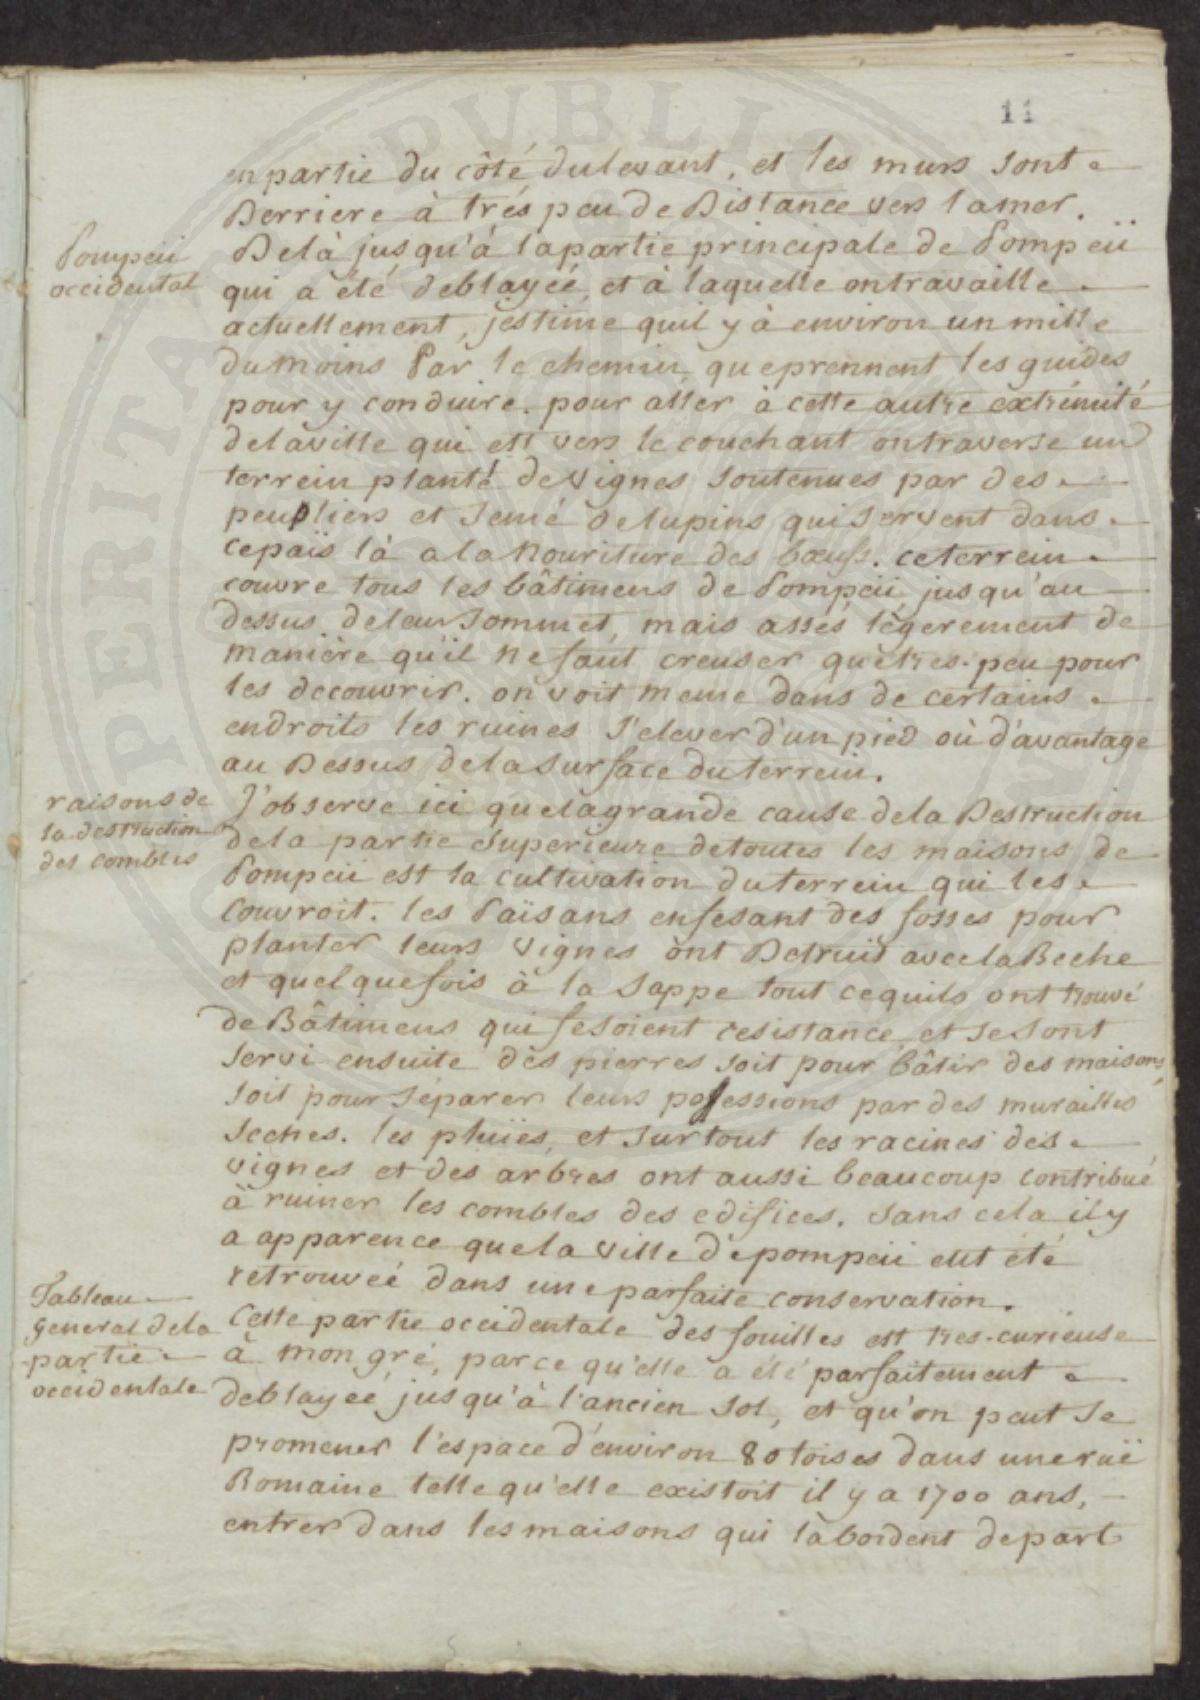 11
en partie du côté du levant, et les murs sont
Derriere à trés peu de Distance vers la mer.
Pompeii
occidental
De là jusqu'à la partie principale de Pompeii
qui a été deblayéé et à laquelle on travaille
actuellement, j'estime qu'il y à environ un mille
du moins Par le chemin que prennent les guides
pour y conduire. pour aller à cette autre extrémité
de la ville qui est vers le couchant on traverse un
terrein planté de Vignes soutenues par des
peupliers et semé de lupins qui servent dans
ce païs là a la nouriture des bœufs. ce terrein
couvre tous les bâtimens de Pompeii jusqu'au
dessus de leur sommet, mais assés légerement de
manière qu'il ne faut creuser que tres-peu pour
les decouvrir. on voit meme dans de certains
endroits les ruines s'elever d'un pied où d'avantage
au Dessus de la surface du terrein.
raisons de
la destruction
des combles
J'observe ici que la grande cause de la Destruction
de la partie superieure de toutes les maisons de
Pompeii est la cultivation du terrein qui les
Couvroit. les Païsans en fesant des fosses pour
planter leurs vignes ònt Detruit avec la Beche
et quelquefois à la sappe tout ce quils ont trouvé
de Bâtimens qui fesoient resistance et se sont
servi ensuite des pierres soit pour bâtir des maisons
soit pour séparer leurs possessions par des murailles
seches. les pluïes, et surtout les racines des
vignes et des arbres ont aussi beaucoup contribué
à ruiner les combles des edifices. sans cela il y
a apparence que la ville de pompeii eut été
retrouvéé dans une parfaite conservation.
Tableau
general de la
partie
occidentale
Cette partie occidentale des fouilles est tres-curieuse
à mon gré, parce qu'elle a été parfaitement
deblayeé jusqu'à l'ancien sol, et qu'on peut se
promener l'espace d'environ 80 toises dans une ruë
Romaine telle qu'elle existoit il y a 1700 ans,
entrer dans les maisons qui la bordent de part